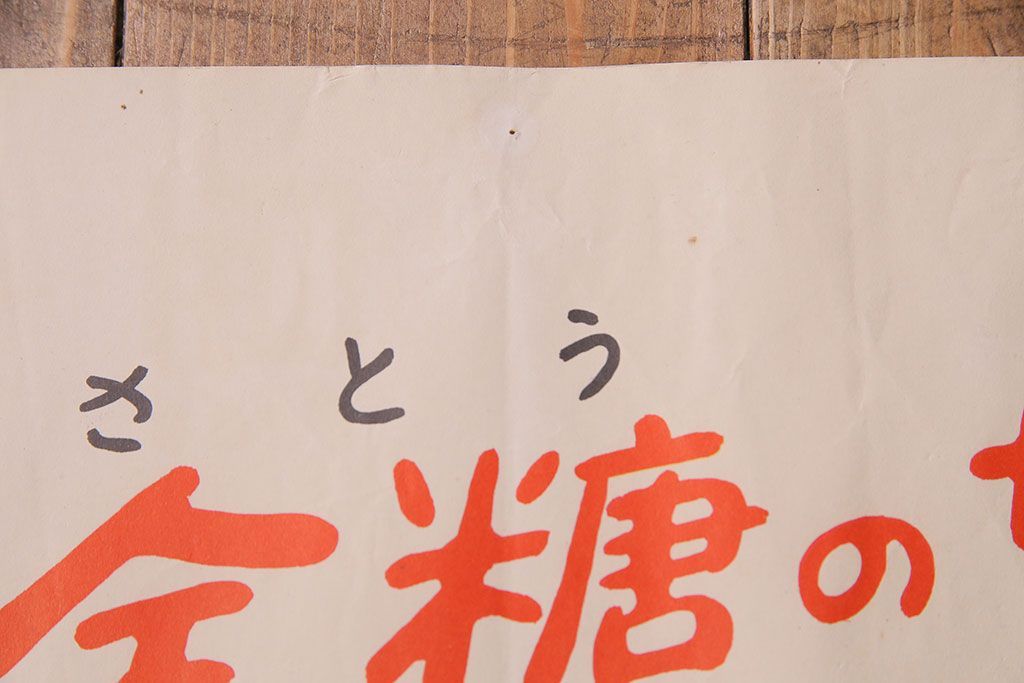 さとう
全糖の